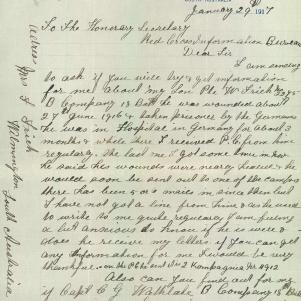 January 29th 1917
To The Honorary Secretary
Red Cross Information Bureau
Dear Sir
I am writing
to ask if you will try & get information
for me about my Son Pte W Frick
B Company 18 Batt he was wounded about
27th June 1916 & taken prisoner by the Germans
he was in Hospital in Germany for about 3
months & while there I received P.C. from him
regularly. The last one I got some time in
he said the wounds were nearly healed & he
would soon be sent out to one of the camps
there has been 4 or 5 mails in since then but
I have not got a line from him & as he used
to write to me quite regularly I am feeling
a bit anxious to know if he is well &
does he receive my letters if you can get
any information for me I would be very
thankful No 2 Kompagnie No 1912
Also can you find out for me
if Capt C G Company 18th Batt
Adress Mrs S Frick
Wilmington South Australia